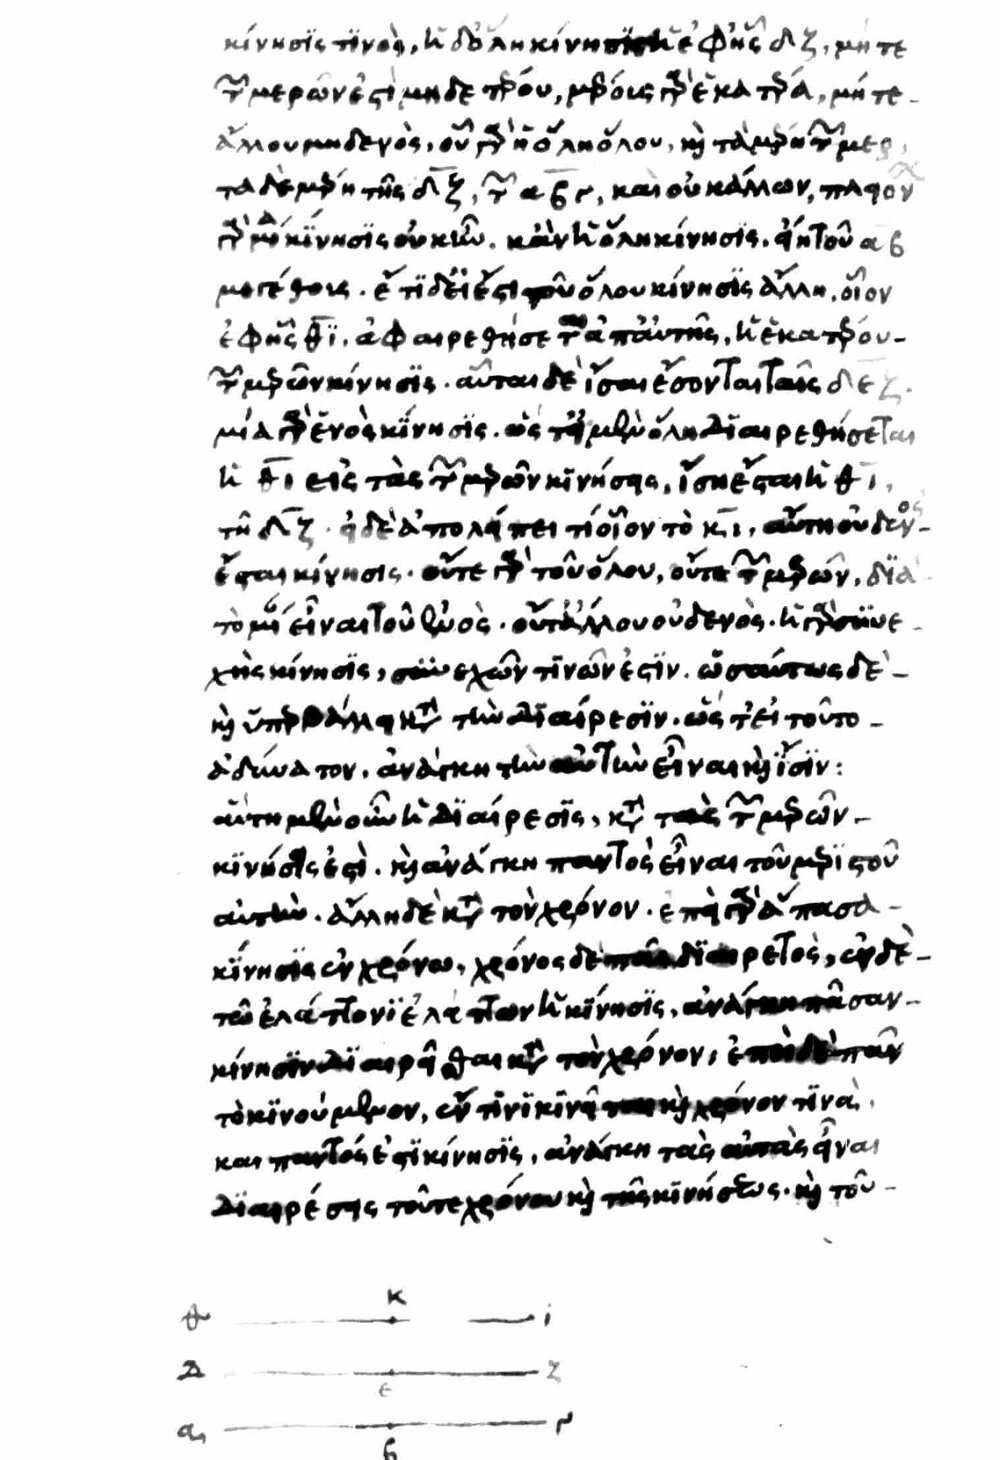 κίνησϊς τϊνος, ἡ δ' ὅλη κίνησϊς ἡ ἐφ' ἧς δζ, μήτε
τῶν μερῶν ἐστὶ μηδετέρου, μέρους γὰρ ἑκατέρα, μήτε
ἄλλου μηδενὸς, οὗ γὰρ ἡ ὅλη ὅλου, καὶ τὰ μέρη τῶν μερ
τὰ δὲ μέρη τῆς δζ, τῶν α β γ, καὶ οὐκ ἄλλων, πλειόν
γὰρ μία κίνησϊς οὐκ ἦν. κἂν ἡ ὅλη κίνησϊς. εἴη τοῦ α β
μεγέθους. ἔτϊ δ' εἴ ἐστι τοῦ ὅλου κίνησϊς ἄλλη, οἷον
ἐφ' ἧς θϊ, ἀφαιρεθήσεται ἀπ' αὐτῆς, ἡ ἑκατέρου
τῶν μερῶν κίνησϊς. αὗται δὲ ἴσαι ἔσονται ταῖς δ ε ζ.
μία γὰρ ἑνὸς κίνησϊς. ὡς τ' εἰ μὲν ὅλη διαιρεθήσεται
ἡ θι εἰς τὰς τῶν μερῶν κϊνήσεις, ἴση ἔσται ἡ θι,
τῆ δζ. εἰ δὲ ἀπολείπει τὶ οἷον τὸ κι, αὕτη οὐδενὸς
ἔσται κίνησις. οὔτε γὰρ τοῦ ὅλου, οὔτε τῶν μερῶν, δϊὰ
τὸ μίαν εἶναι τοῦ ἑνὸς. οὔτ' ἄλλου οὐδενὸς. ἡ γὰρ συνε
χὴς κίνησϊς, συνεχῶν τϊνῶν ἐστϊν. ὡσαύτως δὲ
καὶ ὑπερβάλλει κατὰ τὴν διαίρεσϊν. ὥς τ' εἰ τοῦτο
ἀδύνατον, ἀνάγκη τὴν αὐτὴν εἶναι καὶ ἴσϊν:
αὕτη μὲν οὖν ἡ δϊαίρεσϊς, κατὰ τὰς τῶν μερῶν
κϊνήσεις ἐστὶ. καὶ ἀνάγκη παντὸς εἶναι τοῦ μερϊστοῦ
αὐτὴν. ἄλλη δὲ κατὰ τὸν χρόνον. ἐπεὶ γὰρ ἅπασα
κίνησϊς ἐν χρόνω, χρόνος δὲ πᾶς δϊαιρετὸς, ἐν δὲ
τῶ ἐλάττονϊ ἐλάττων ἡ κϊνησϊς, ἀνάγκη πᾶσαν
κίνησϊν δϊαιρεῖσθαι κατὰ τὸν χρόνον, ἐπεὶ δὲ πᾶν
τὸ κϊνούμενον, ἔν τϊνϊ κϊνεῖται καὶ χρόνον τϊνὰ,
καὶ παντός ἐστϊ κίνησϊς, ἀνάγκη τὰς αὐτὰς εἶναι
δϊαιρέσεις τοῦ τε χρόνου καὶ τῆς κϊνήσεως. καὶ τοῦ
θ κ ι
Δ ε ζ
α β γ